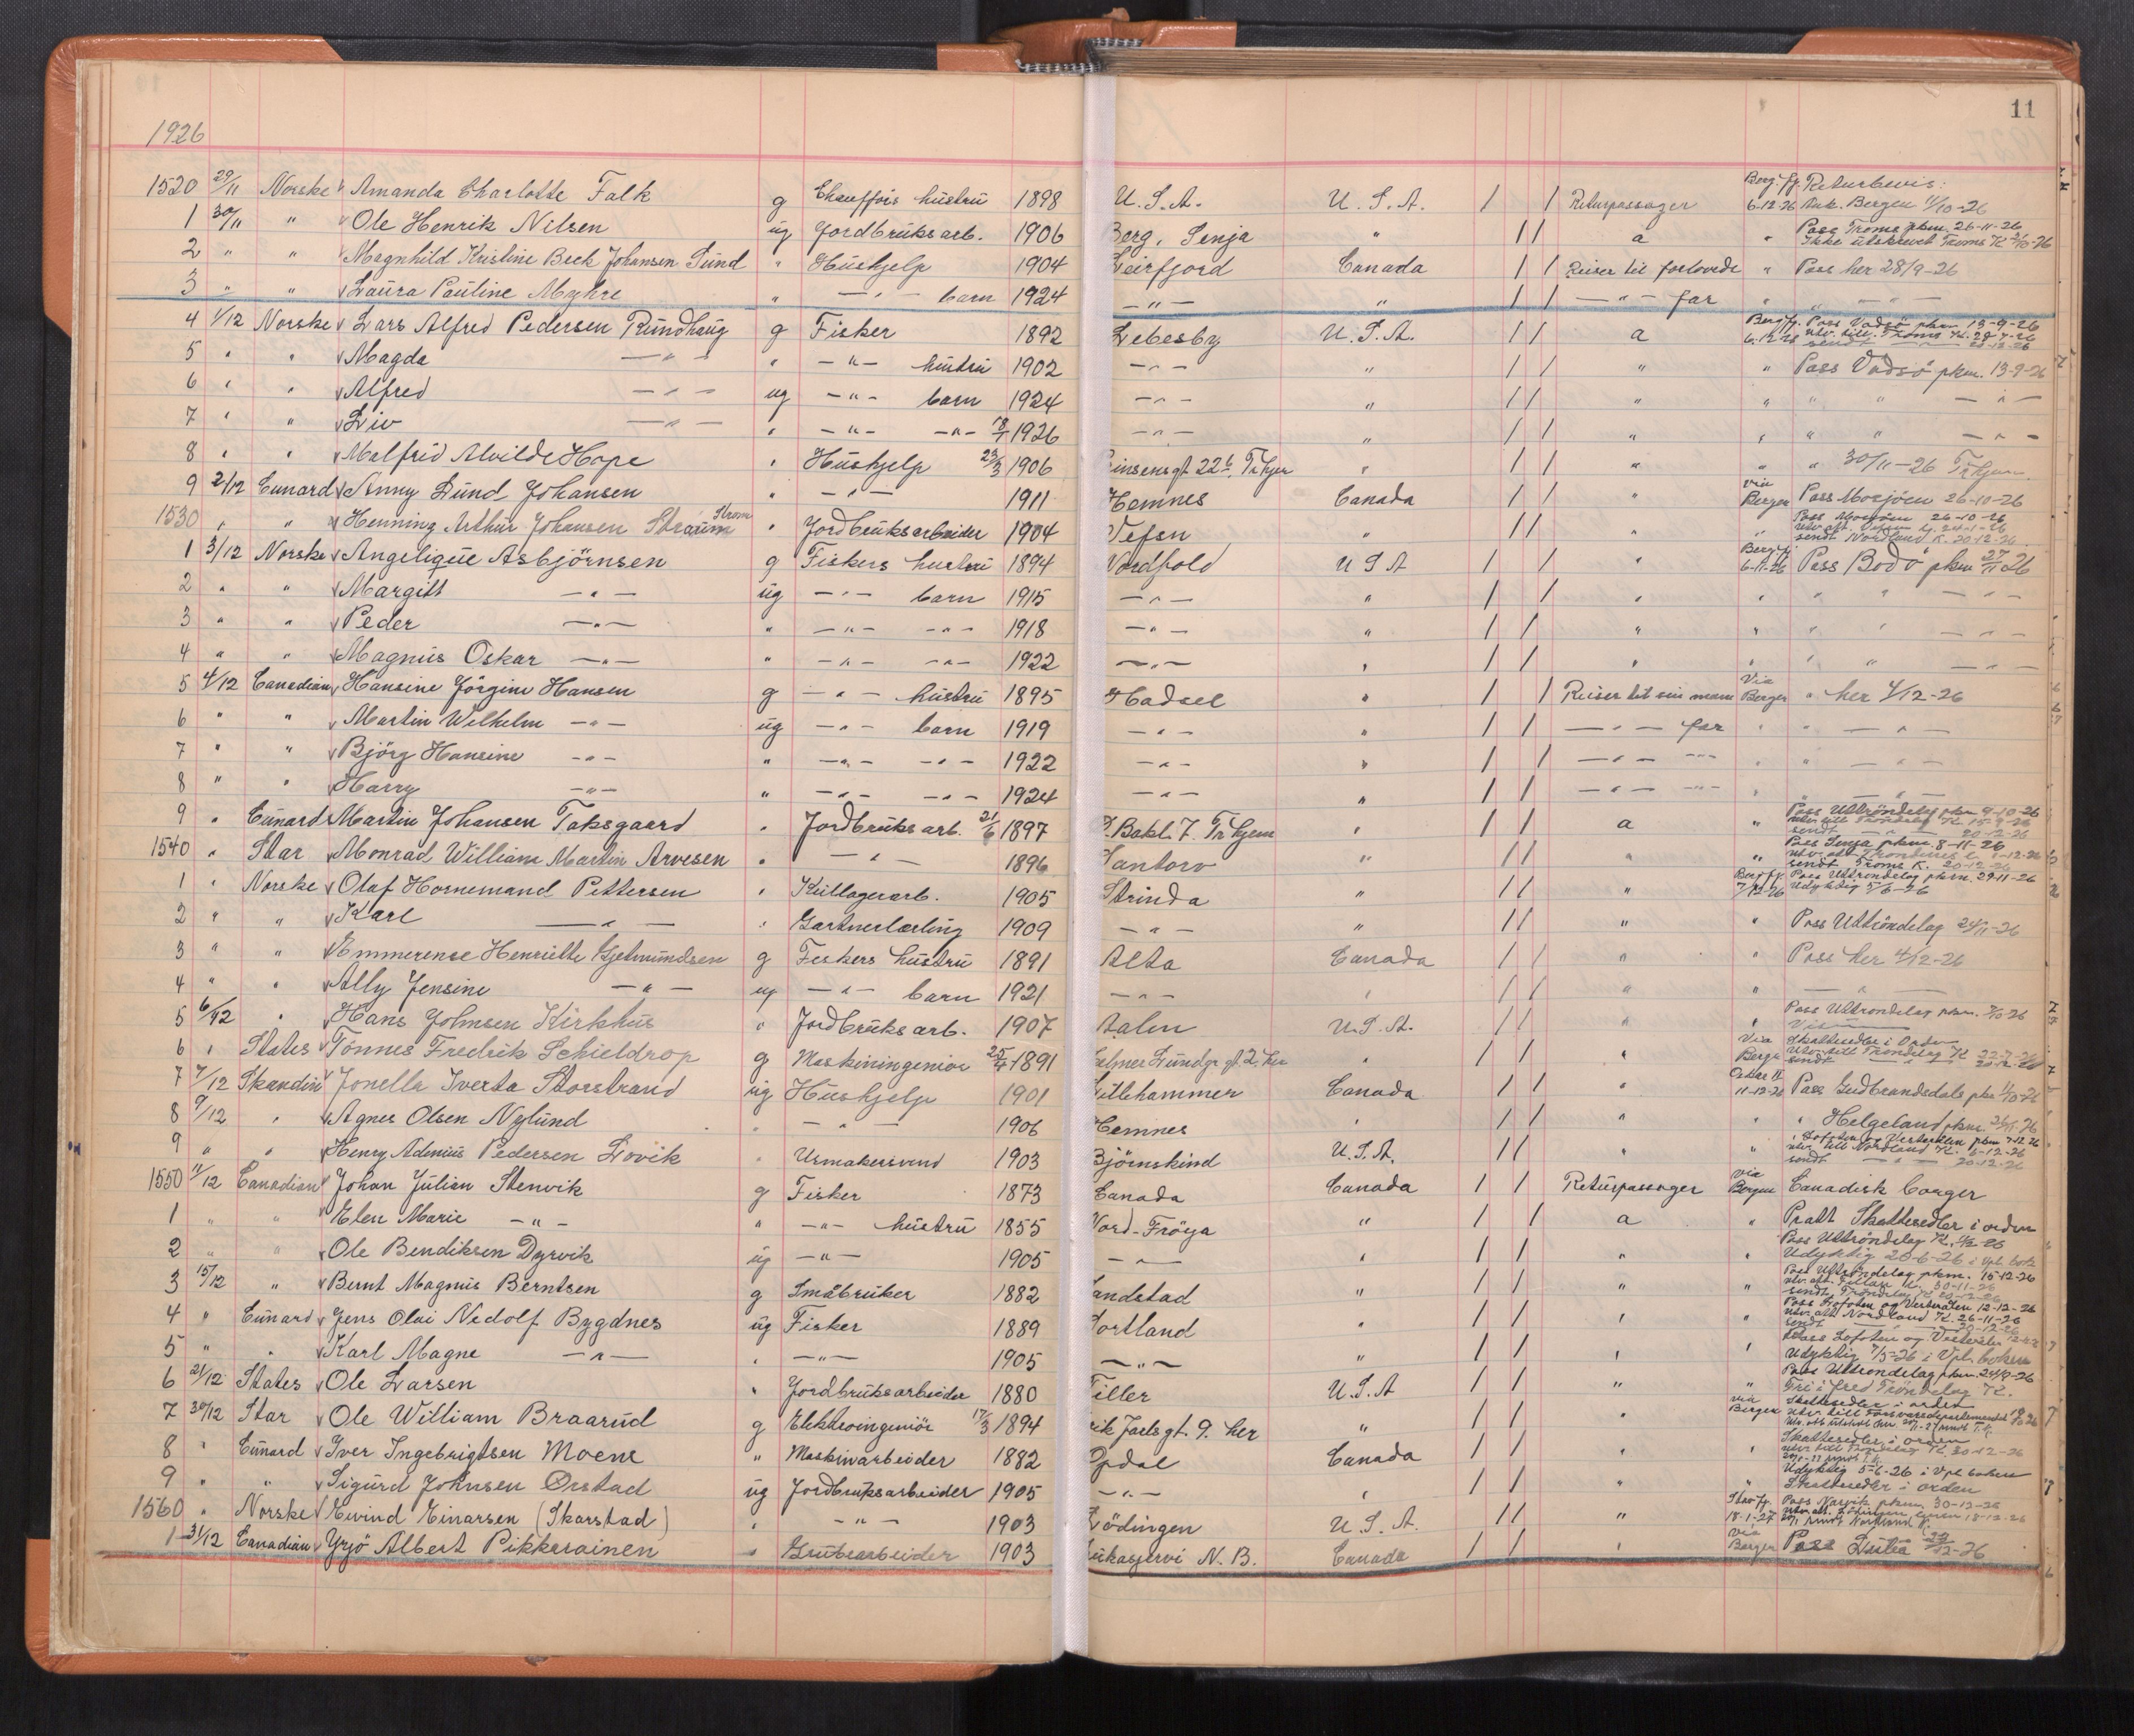 11
1926
1520 29/11 Norske Amanda Charlotte Falk g Chaufförs hustru 1898 U.S.A. U.S.A. / / Returpassager Berg.fj. 6-12-26 Returbevis: Bergen 11/10-26
1 30/11 " Ole Henrik Nilsen ug Jordbruksarb. 1906 Berg, Senja " / / a " Pass Troms pkm. 26-11-26 Ikke utskrevet Troms K.
2 " " Magnhild Kristine Beck Johansen Sund " Hushjelp 1904 Leirfjord Canada / / Reiser til forlovede " Pass her 28/9-26
3 " " Laura Pauline Myhre " — " — barn 1924 — " — " / / — " — far " " — " —
4 1/12 Norske Lars Alfred Pedersen Rundhaug g Fisker 1892 Lebesby U.S.A. / / a Berg.fj. 6-12-26 Pass Vadsö pkm 13-9-26
5 " " Magda — " — " — " — hustru 1902 — " — " / / " " Pass Vadsö pkm. 13-9-26
6 " " Alfred — " — ug — " — barn 1924 — " — " / / " " " " — " —
7 " " Liv — " — " — " — — " — 1926 — " — " / / " " " " — " —
8 " " Malfrid Alvilde Hope " Hushjelp 23/3 1906 Prinsensgt 22b Tr.hjem " / / " " " 30/11-26 Tr.hjem
9 2/12 Cunard Anny Lund Johansen " — " — 1911 Hemnes Canada / / " via Bergen Pass Mosjöen 26-10-26
1530 " " Henning Arthur Johansen Straum Strom " Jordbruksarbeider 1904 Vefsn " / / " " Pass Mosjöen 26-10-26 sendt Nordland K. 20-12-26
1 3/12 Norske Angelique Asbjörnsen g Fiskers hustru 1894 Nordfold U S A / / " Berg.fj. 6-11-26 Pass Bodö pkm 27/11 26
2 " " Margitt — " — ug — " — barn 1915 — " — " / / " " " " — " —
3 " " Peder — " — " — " — — " — 1918 — " — " / / " " " " — " —
4 " " Magnus Oskar — " — " — " — — " — 1922 — " — " / / " " " " — " —
5 4/12 Canadian Hansine Jörgine Hansen g — " — hustru 1895 Hadsel " / / Reiser til sin mann Via Bergen " her 4/12-26
6 " " Martin Wilhelm — " — ug — " — barn 1919 — " — " / / — " — far " " — " —
7 " " Björg Hansine — " — " — " — — " — 1922 — " — " / / — " — — " — " " — " —
8 " " Harry — " — " — " — — " — 1924 — " — " / / — " — — " — " " — " —
9 " Cunard Martin Johansen Taksgaard " Jordbruksarb. 21/6 1897 Ö. Bakl. 7. Tr.hjem " / / a " Pass Uttröndelag pkm 9-10-26 sendt — " — 20-12-26
1540 " Star Monrad William Martin Arvesen " — " — 1896 " / / " " Pass Senja pkm. 8-11-26 sendt Troms K. 20-12-26
1 " Norske Olaf Hornemand Pettersen " Kullagerarb. 1905 Strinda " / / " Berg.fj. 7/12-26 Pass Uttröndelag pkm. 29-11-26 Udyktig 5/6-26
2 " " Karl — " — " Gartnerlærling 1909 — " — " / / " " Pass Uttröndelag 24/11-26
3 " " Emmerense Henriette Gjetmundsen g Fiskers hustru 1891 Alta Canada / / " " Pass her 4/12-26
4 " " Ally Jensine — " — ug — " — barn 1921 — " — " / / " " — " —
5 6/12 " Hans Johnsen Kirkhus " Jordbruksarb. 1907 Aalen U.S.A. / / " " Pass Uttröndelag pkm.
6 " States Tönnes Fredrik Schieldrop g Maskiningeniör 1891 " / / " Via Bergen Skattesedler i orden
7 7/12 Skandin Jonella Iverta Storstrand ug Hushjelp 1901 Lillehammer Canada / / " Oskar II 11-12-26 Pass Gudbrandsdals pkm 1/10-26
8 9/12 " Agnes Olsen Nylund " — " — 1906 Hemnes " / / " " " Helgeland pkm
9 " " Henry Adenius Pedersen Lovik " Urmakersvend 1903 Björnskind U.S.A. / / " " " Lofoten og Vesterålen pkm 7-12-26
1550 11/12 Canadian Johan Julian Stenvik g Fisker 1873 Canada Canada / / Returpassager via Bergen Canadisk borger
1 " " Elen Marie — " — " — " — hustru 1855 Nord-Fröya " / / a " Pratt Skattesedler i orden
2 " " Ole Bendiksen Dyrvik ug — " — 1905 — " — " / / " " Pass Uttröndelag Udyktig 20-6-26 i Vpl. bok
3 15/12 " Bernt Magnus Berntsen g Småbruker 1882 Sandstad " / / " " Pass Uttröndelag pkm. 15-12-26
4 " Cunard Jens Olai Nedolf Bygdnes ug Fisker 1889 Sortland " / / " " Pass Lofoten og Vesterålen 12-12-26 Nordland K. 26-11-26
5 " " Karl Magne — " — " — " — 1905 — " — " / / " " Pass Lofoten og Vesterålen Udyktig 7/5-26 i Vpl. boken
6 21/12 States Ole Larsen " Jordbruksarbeider 1880 Tiller U.S.A / / " " Pass Uttröndelag pkm. 24/9-26 Fri i fred Tröndelag K.
7 30/12 Star Ole William Braarud g Elektroingeniör 17/3 1894 Erik Jarlsgt. 9. her " / / " via Bergen Skattesedler i orden
8 " Cunard Iver Ingebrigtsen Moene " Maskinarbeider 1882 Opdal Canada / / " " Skattesedler i orden
9 " " Sigurd Johnsen Örstad ug Jordbruksarbeider 1905 — " — " / / " " Udyktig 5-6-26 i Vpl boken Skattesedler i orden
1560 " Norske Eivind Einarsen (Skarstad) " — " — 1903 Lödingen U.S.A. / / " Stav.fj. 18-1-27 Pass Narvik pkm. 30-12-26
1 31/12 Canadian Yrjö Albert Pikkarainen " Grubearbeider 1903 Jukasjervi N.B. Canada / / " via Bergen Pass Luleå 12-26